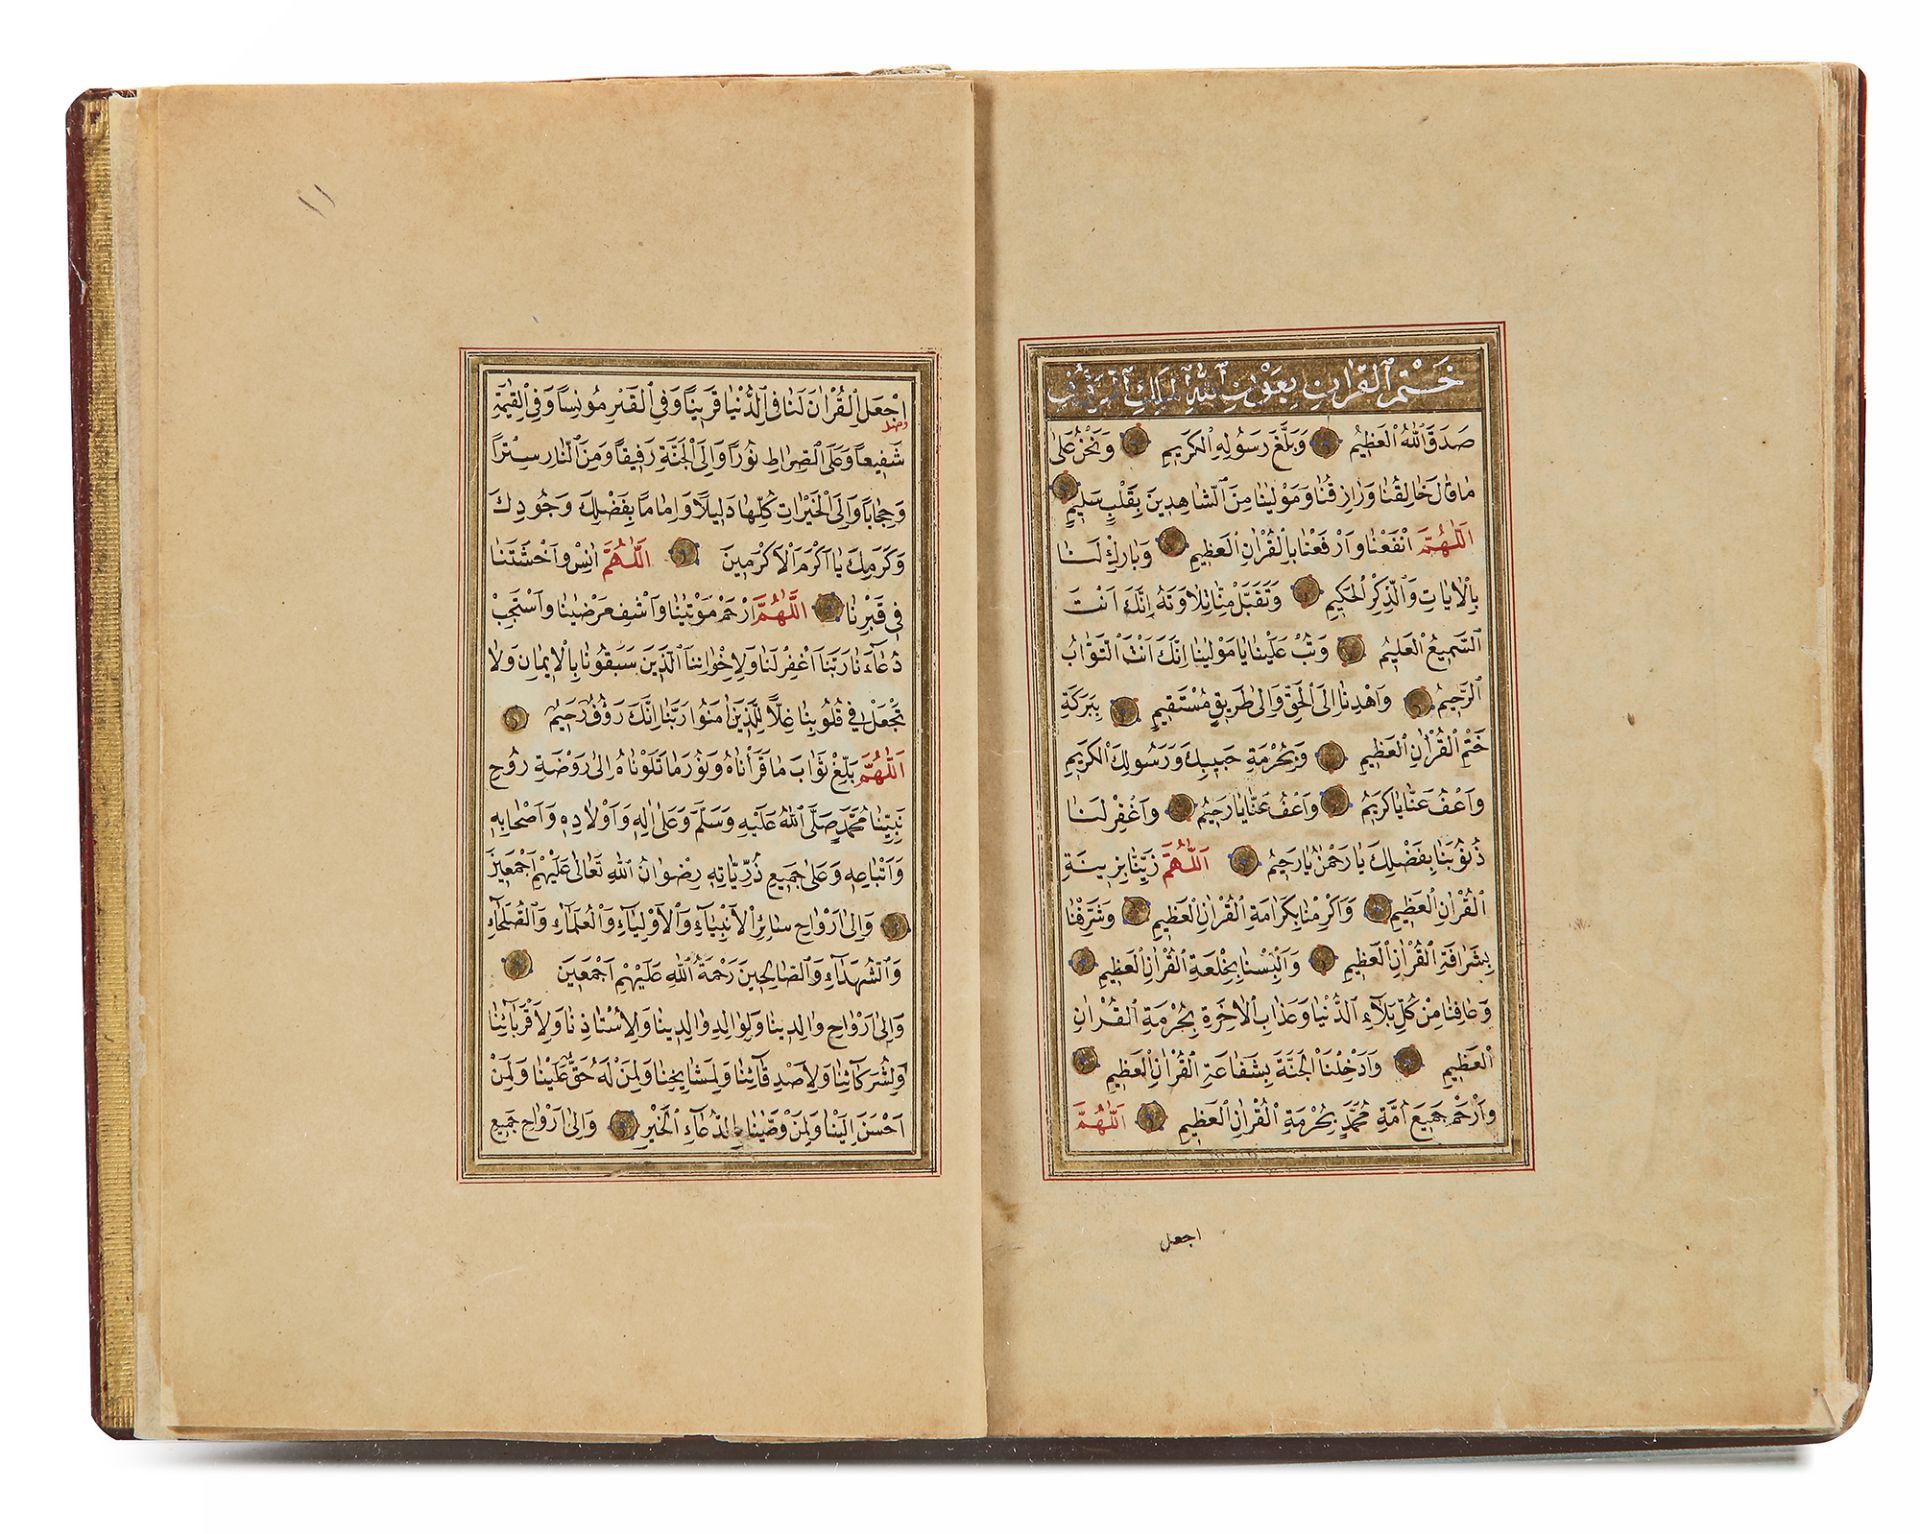 ختم القران بعون الله الملك
صَدَقَ اللهُ العَظِيمُ وَبَلَّغَ رَسُولُهِ الكَرِيمِ وَنَحْنُ عَلٰى
مَا قَالَ خَالِقُنَا وَرَازِقُنَا وَمَوْلٰينَا مِنَ الشَّاهِدِينَ بِقَلْبٍ سَلِيمٍ
اَللّٰهُمَّ انْفَعْنَا وَارْفَعْنَا بِالْقُرْاٰنِ الْعَظِيمِ وَبَارِكْ لَنَا
بِالْاٰيَاتِ وَالذِّكْرِ الْحَكِيمِ وَتَقَبَّلْ مِنَّا تِلَاوَتَهُ اِنَّكَ اَنْتَ
السَّمِيعُ الْعَلِيمُ وَتُبْ عَلَيْنَا يَا مَوْلٰينَا اِنَّكَ اَنْتَ التَّوَّابُ
الرَّحِيمُ وَاهْدِنَا اِلَى الْحَقِّ وَاِلٰى طَرِيقٍ مُسْتَقِيمٍ بِبَرَكَةِ
خَتْمِ الْقُرْاٰنِ الْعَظِيمِ وَبِحُرْمَةِ حَبِيبِكَ وَرَسُولِكَ الْكَرِيمِ
وَاعْفُ عَنَّا يَا كَرِيمُ وَاعْفُ عَنَّا يَا رَحِيمُ وَاغْفِرْ لَنَا
ذُنُوبَنَا بِفَضْلِكَ يَا رَحْمٰنُ يَا رَحِيمُ اَللّٰهُمَّ زَيِّنَّا بِزِينَةِ
الْقُرْاٰنِ الْعَظِيمِ وَاَكْرِمْنَا بِكَرَامَةِ الْقُرْاٰنِ الْعَظِيمِ وَشَرِّفْنَا
بِشَرَافَةِ الْقُرْاٰنِ الْعَظِيمِ وَاَلْبِسْنَا بِخِلْعَةِ الْقُرْاٰنِ الْعَظِيمِ
وَعَافِنَا مِنْ كُلِّ بَلَاءِ الدُّنْيَا وَعَذَابِ الْاٰخِرَةِ بِحُرْمَةِ الْقُرْاٰنِ
الْعَظِيمِ وَاَدْخِلْنَا الْجَنَّةَ بِشَفَاعَةِ الْقُرْاٰنِ الْعَظِيمِ
وَارْحَمْ جَمِيعَ اُمَّةِ مُحَمَّدٍ بِحُرْمَةِ الْقُرْاٰنِ الْعَظِيمِ اَللّٰهُمَّ
اجعل
١١
اجْعَلِ الْقُرْاٰنَ لَنَا فِي الدُّنْيَا قَرِينًا وَفِي الْقَبْرِ مُونِسًا وَفِي الْقِيٰمَةِ
شَفِيعًا وَعَلَى الصِّرَاطِ نُورًا وَاِلَى الْجَنَّةِ رَفِيقًا وَمِنَ النَّارِ سِتْرًا
وَحِجَابًا وَاِلَى الْخَيْرَاتِ كُلِّهَا دَلِيلًا وَاِمَامًا بِفَضْلِكَ وَجُودِكَ
وَكَرَمِكَ يَا اَكْرَمَ الْاَكْرَمِينَ اَللّٰهُمَّ اٰنِسْ وَاحْشَتَنَا
فِي قَبْرِنَا اَللّٰهُمَّ ارْحَمْ مَوْتٰينَا وَاشْفِ مَرْضٰينَا وَاسْتَجِبْ
دُعَاءَنَا رَبَّنَا اغْفِرْ لَنَا وَلِاِخْوَانِنَا الَّذِينَ سَبَقُونَا بِالْاِيمَانِ وَلَا
تَجْعَلْ فِي قُلُوبِنَا غِلًّا لِلَّذِينَ اٰمَنُوا رَبَّنَا اِنَّكَ رَؤُفٌ رَحِيمٌ
اَللّٰهُمَّ بَلِّغْ ثَوَابَ مَا قَرَأْنَاهُ وَنُورَ مَا تَلَوْنَاهُ اِلٰى رَوْضَةِ رُوحِ
نَبِيِّنَا مُحَمَّدٍ صَلَّى اللهُ عَلَيْهِ وَسَلَّمَ وَعَلٰى اٰلِهِ وَاَوْلَادِهِ وَاَصْحَابِهِ
وَاَتْبَاعِهِ وَعَلٰى جَمِيعِ ذُرِّيَّاتِهِ رِضْوَانُ اللهِ تَعَالٰى عَلَيْهِمْ اَجْمَعِينَ
وَاِلٰى اَرْوَاحِ سَائِرِ الْاَنْبِيَاءِ وَالْاَوْلِيَاءِ وَالْعُلَمَاءِ وَالصُّلَحَاءِ
وَالشُّهَدَاءِ وَالصَّالِحِينَ رَحْمَةُ اللهِ عَلَيْهِمْ اَجْمَعِينَ
وَاِلٰى اَرْوَاحِ وَالِدِينَا وَلِوَالِدِ وَالِدِينَا وَلِاُسْتَاذِنَا وَلِاَقْرَبَائِنَا
وَلِشُرَكَائِنَا وَلِاَصْدِقَائِنَا وَلِمَشَايِخِنَا وَلِمَنْ لَهُ حَقٌّ عَلَيْنَا وَلِمَنْ
اَحْسَنَ اِلَيْنَا وَلِمَنْ وَصَّيْنَا بِالدُّعَاءِ الْخَيْرِ وَاِلٰى اَرْوَاحِ جَمِيعِ